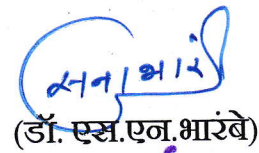 (डॉ. एस.एन.भारंबे)